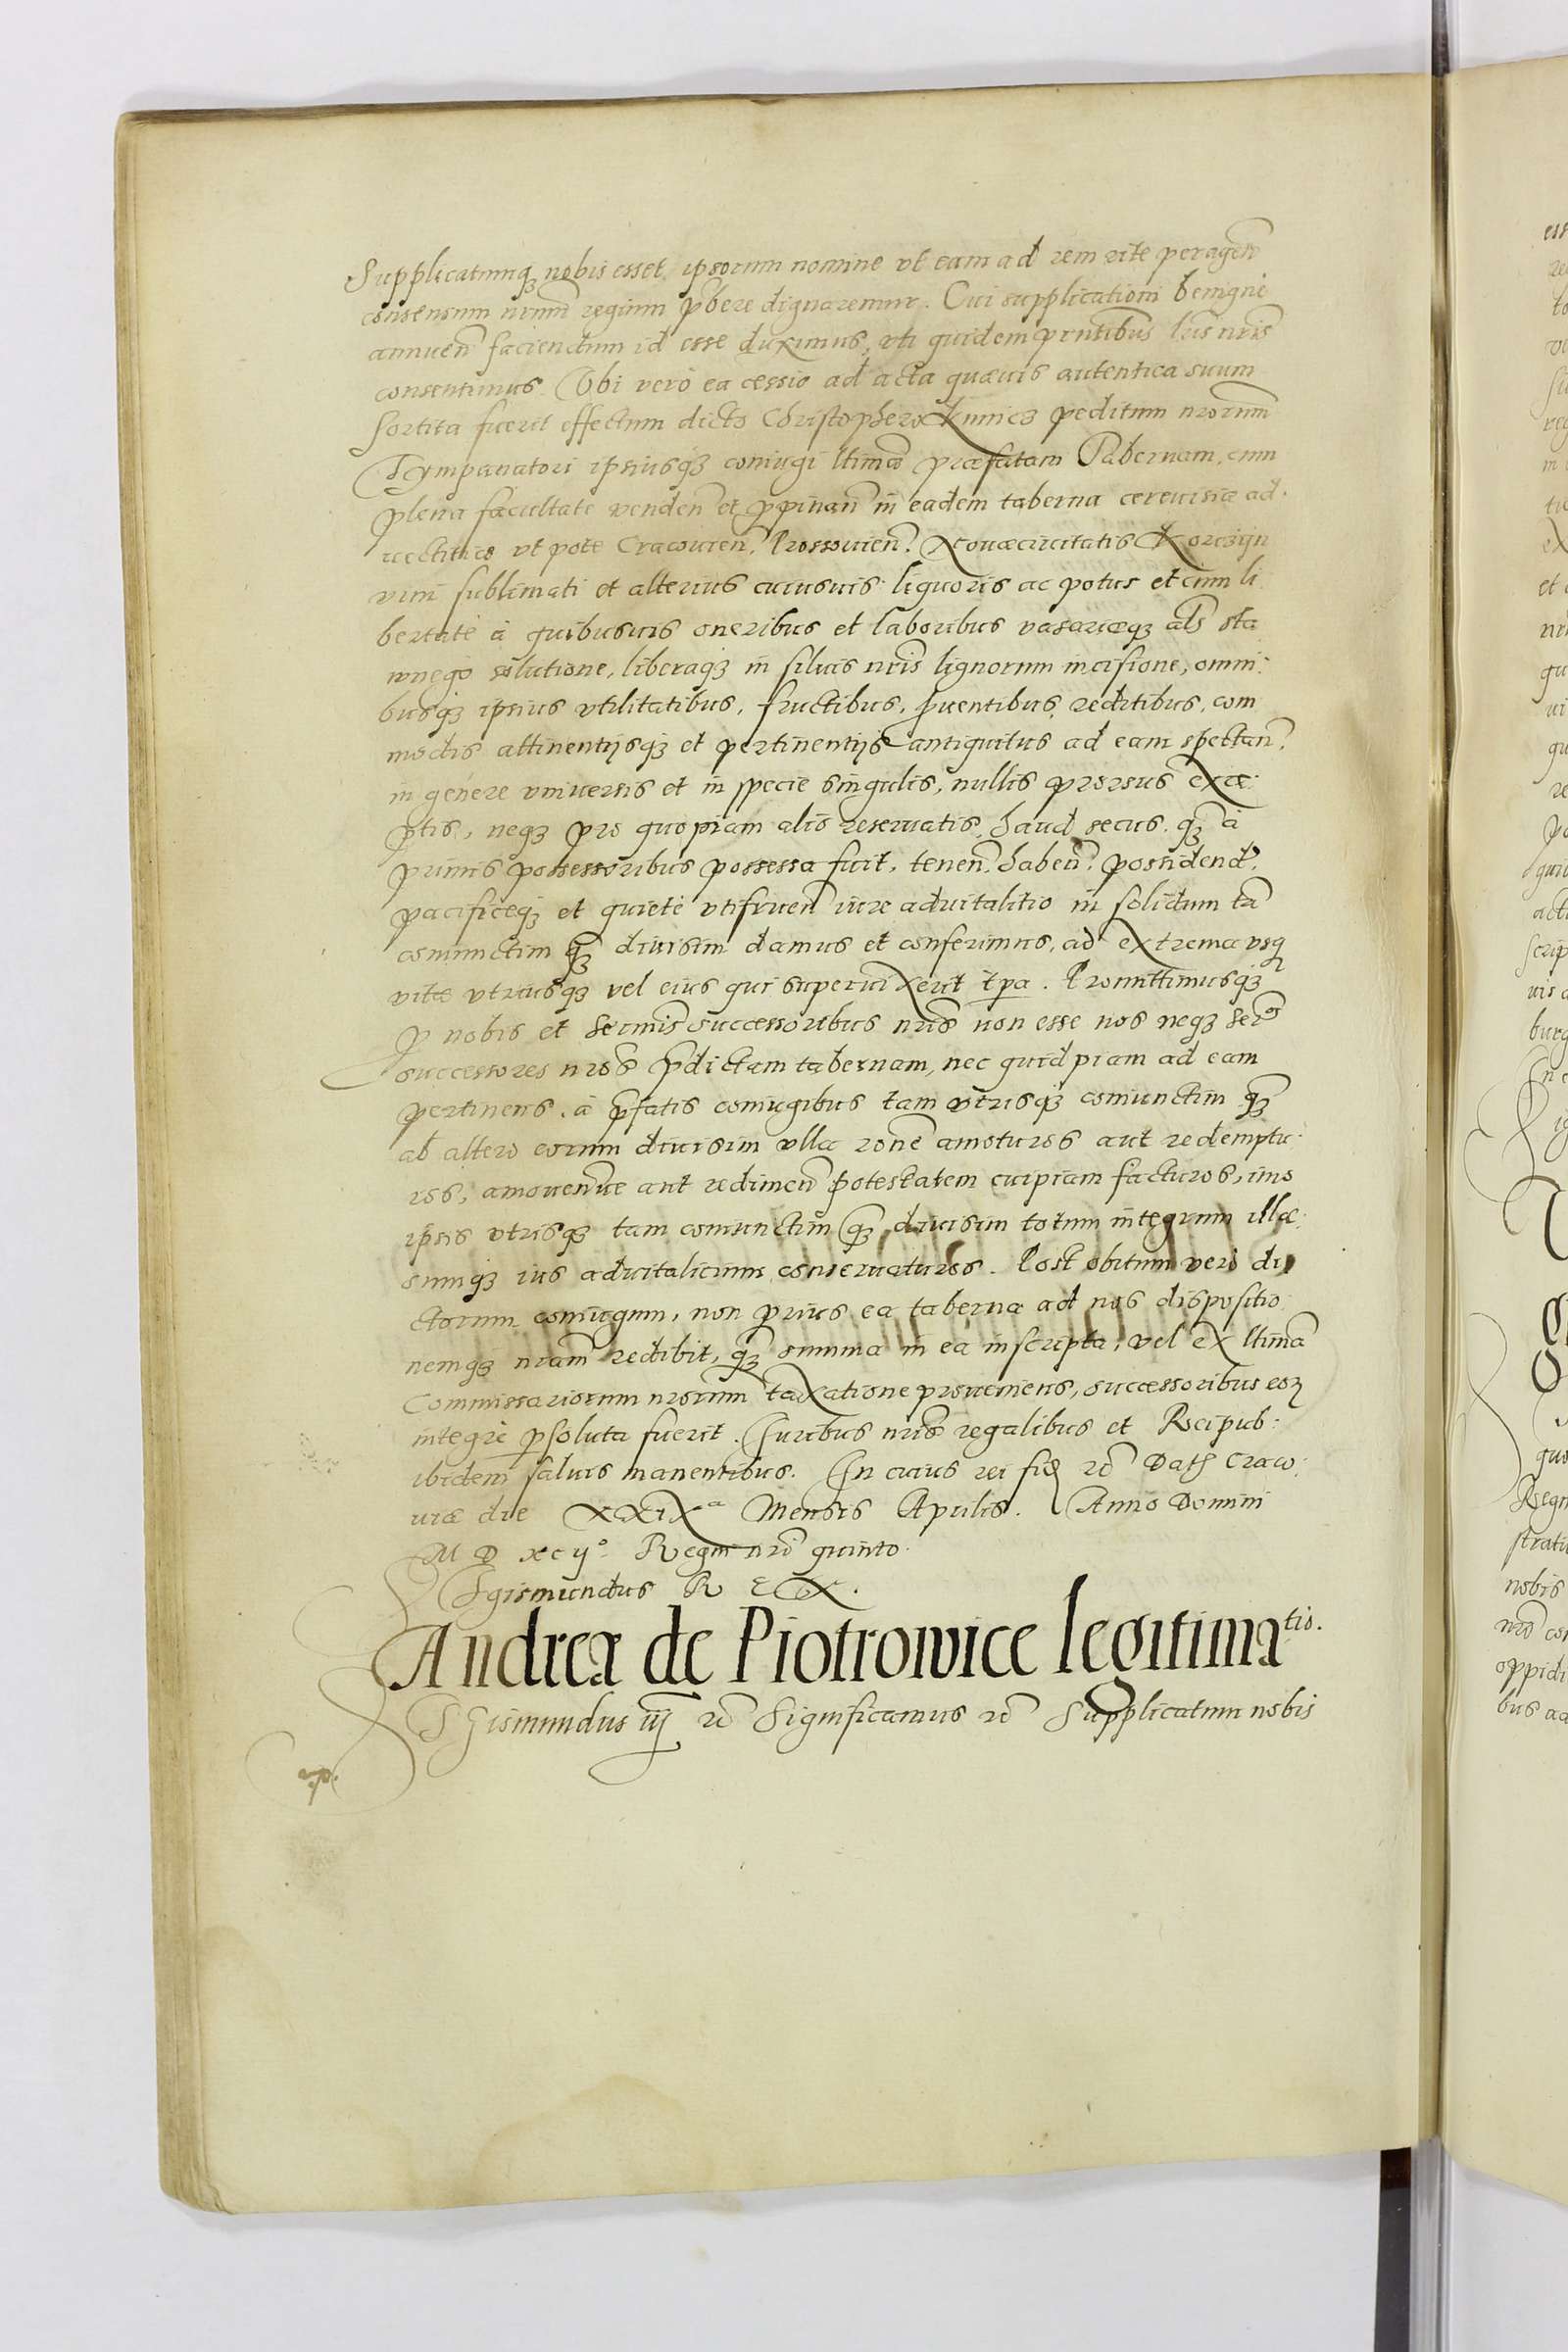 Supplicatumq3 nobis esset ipsorum nomine vt eam ad rem rite peragen
consensum nrum regium pbere dignaremur. Cui supplicationi benigne
annuen faciendum id esse duximus, vti quidem pntibus lris nris
consentimus. Vbi vero ea cessio ad acta quævis autentica suum
sortita fuerit effectum dicto Christophero Kunicz peditum nrorum
Tympanatori ipsiusq3 coniugi ltimæ præfatam Tabernam, cum
plena facultate venden et ppinan in eadem taberna cereuisiæ ad-
uectitiæ vt pote Cracouien, Prossouien, Nouæciuitatis Korczijn
vini sublimati et alterius cuiusuis liquoris ac potus et cum li
bertate à quibusuis oneribus et laboribus vasariæq3 als sta
wnego solutione, liberaq3 in siluis nris lignorum incisione, omni-
busq3 ipsius vtilitatibus, fructibus, puentibus, reditibus, com
modis attinentijsq3 et pertinentijs antiquitus ad eam spectan,
in genere vniuersis et in specie singulis, nullis prorsus exce-
ptis, neq3 pro quopiam alio reseruatis, haud secus, q3 à
primis possessoribus possessa fuit, tenen, haben, possidend,
pacificeq3 et quietè vtifruen iure aduitalitio in solidum tã
coniunctim q3 diuisim damus et conferimus, ad extrema vsq
vitæ vtriusq3 vel eius qui superuixerit tpa. Promittimusq3
p nobis et sermis successoribus nris non esse nos neq3 seros
successores nros pdictam tabernam, nec quidpiam ad eam
pertinens, à pfatis coniugibus tam vtrisq3 coniunctim q3
ab altero eorum diuisim vlla rone amoturos aut redemptu-
ros, amouenve aut redimen potestatem cuipiam facturos, imo
ipsis vtrisq3 tam coniunctim q3 diuisim totum integrum illæ-
sumq3 ius aduitalicium conseruaturos. Post obitum vero di
ctorum coniugum, non prius ea taberna ad nos dispositio
nemq3 nram redibit, q3 summa in ea inscripta, vel ex ltima
Commissariorum nrorum taxatione proueniens, successoribus eor
integrè psoluta fuerit. Iuribus nris regalibus et Reipub:
ibidem saluis manentibus. In cuius rei fid rc Dat Craco-
uiæ die XXIXa Mensis Aprilis. Anno Domini
M D xc ijo. Regni nri quinto.
Sigismundus REX.
Andreæ de Piotrowice legitimatio.
Sigismundus iij rc Significamus rc Supplicatum nobis